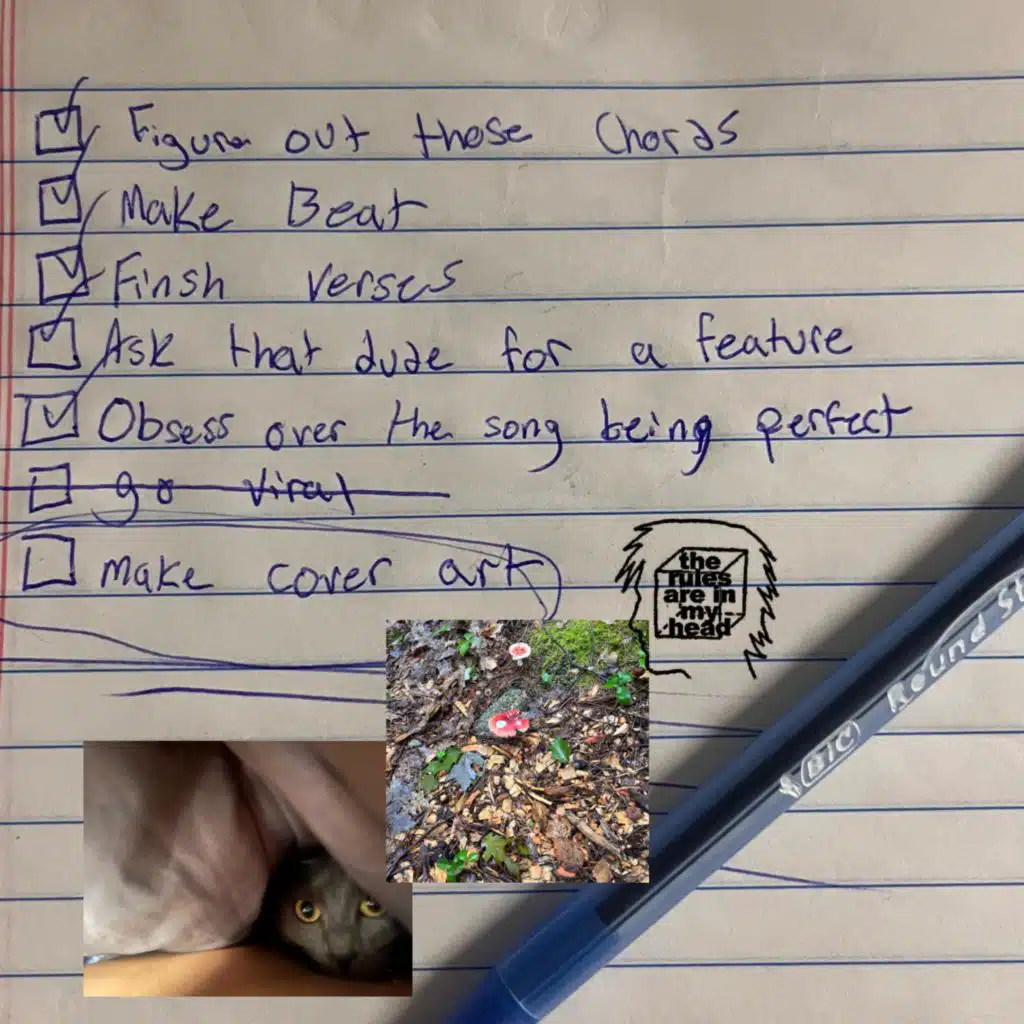 Figure out those Chords
Make Beat
Finsh verses
Ask that dude for a feature
Obsess over the song being perfect
go viral
make cover art
the
rules
are in
my
head
BIC Round St